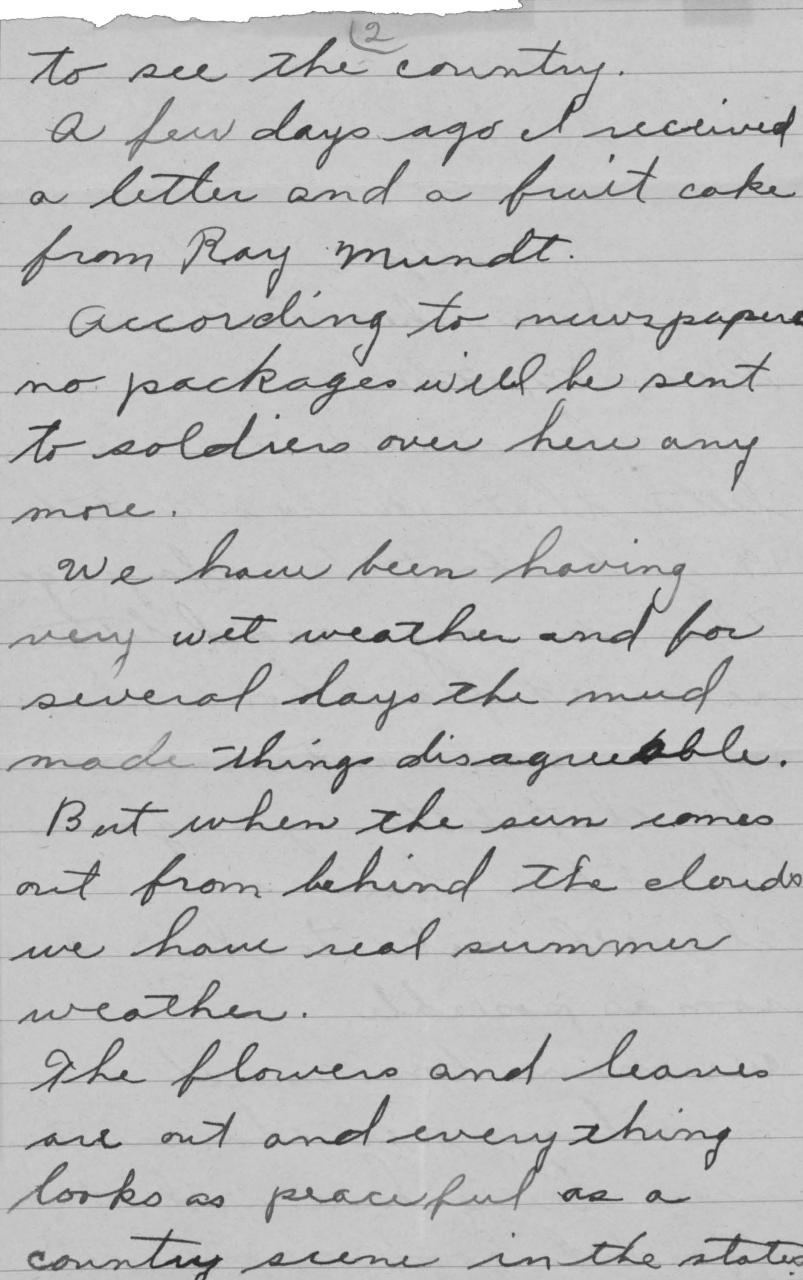 2
to see the country.
A few days ago I received
a letter and a fruit cake
from Ray Mundt.
According to newspapers
no packages will be sent
to soldiers over here any
more.
We have been having
very wet weather and for
several days the mud
made things disagreeable.
But when the sun comes
out from behind the clouds
we have real summer
weather.
The flowers and leaves
are out and everything
looks as peaceful as a
country scene in the states